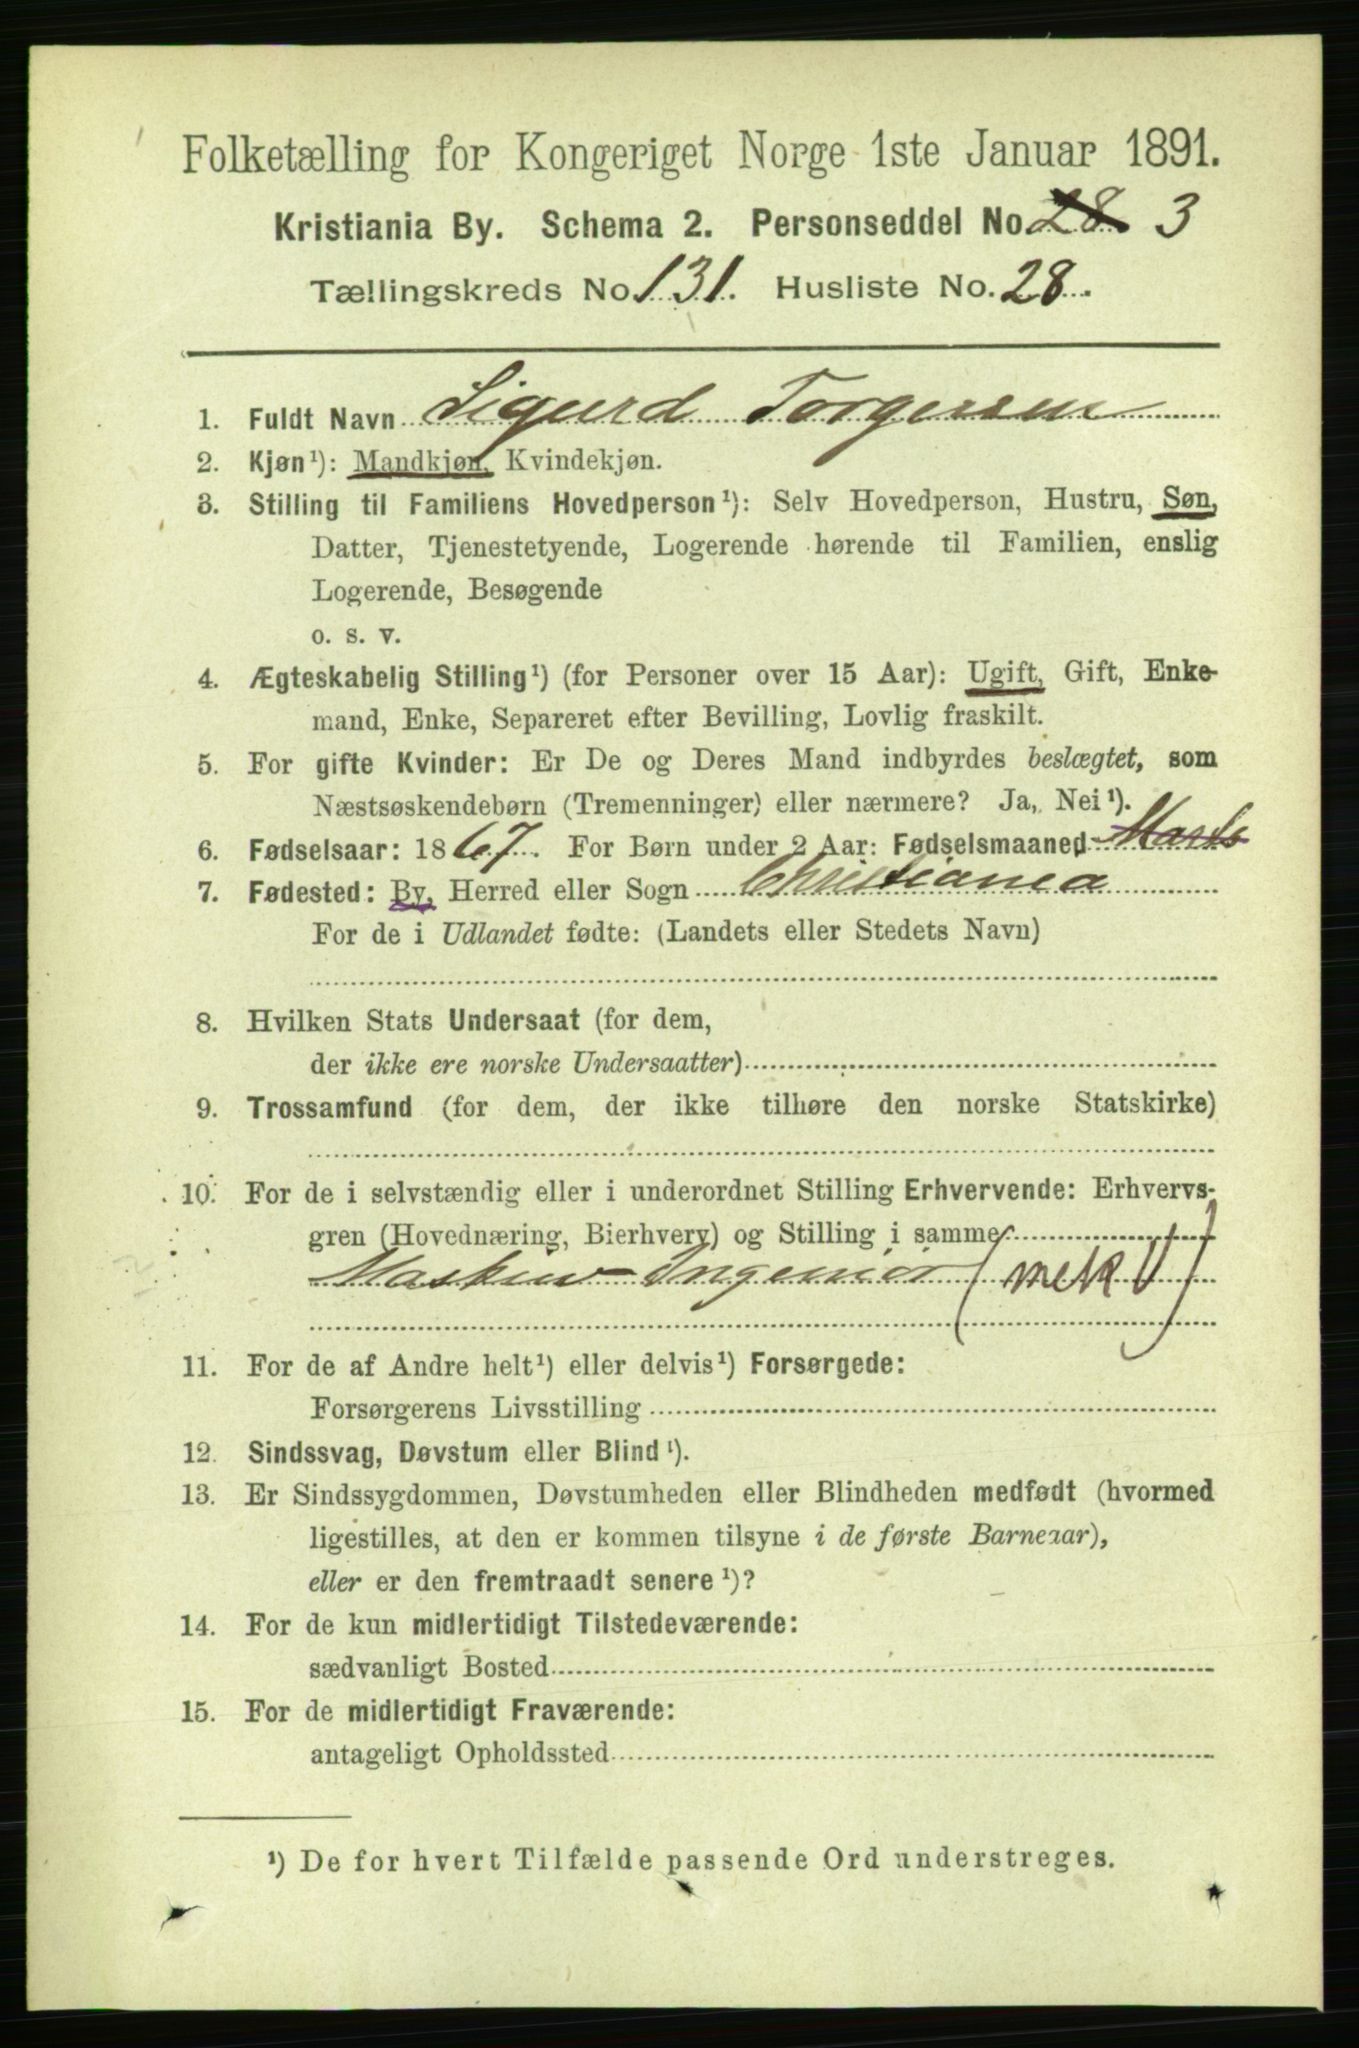 Folketælling for Kongeriget Norge 1ste Januar 1891.
Kristiania By. Schema 2. Personseddel No 28 3
Tællingskreds No. 131. Husliste No. 28.
1. Fuldt Navn Sigurd Torgersen
2. Kjøn¹): Mandkjøn, Kvindekjøn.
3. Stilling til Familiens Hovedperson¹): Selv Hovedperson, Hustru, Søn,
Datter, Tjenestetyende, Logerende hørende til Familien, enslig
Logerende, Besøgende
o. s. v.
4. Ægteskabelig Stilling¹) (for Personer over 15 Aar): Ugift, Gift, Enke-
mand, Enke, Separeret efter Bevilling, Lovlig fraskilt.
5. For gifte Kvinder: Er De og Deres Mand indbyrdes beslægtet, som
Næstsøskendebørn (Tremenninger) eller nærmere? Ja, Nei¹).
6. Fødselsaar: 1867. For Børn under 2 Aar: Fødselsmaaned Marts
7. Fødested: By, Herred eller Sogn Christiania
For de i Udlandet fødte: (Landets eller Stedets Navn)
8. Hvilken Stats Undersaat (for dem,
der ikke ere norske Undersaatter)
9. Trossamfund (for dem, der ikke tilhøre den norske Statskirke)
10. For de i selvstændig eller i underordnet Stilling Erhvervende: Erhvervs-
gren (Hovednæring, Bierhverv) og Stilling i samme
Maskin-Ingeniør (mek V)
11. For de af Andre helt¹) eller delvis¹) Forsørgede:
Forsørgerens Livsstilling
12. Sindssvag, Døvstum eller Blind¹).
13. Er Sindssygdommen, Døvstumheden eller Blindheden medfødt (hvormed
ligestilles, at den er kommen tilsyne i de første Barneaar),
eller er den fremtraadt senere¹)?
14. For de kun midlertidigt Tilstedeværende:
sædvanligt Bosted
15. For de midlertidigt Fraværende:
antageligt Opholdssted
¹) De for hvert Tilfælde passende Ord understreges.